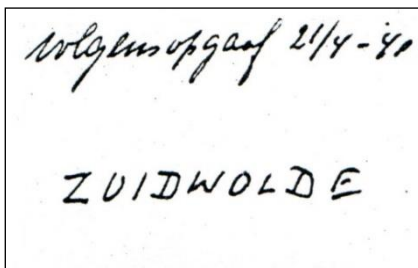 volgens opgaaf 21/4-'40
ZUIDWOLDE